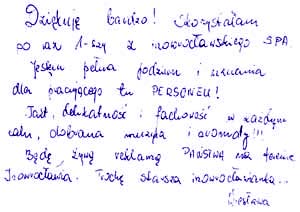 Dziękuję bardzo! Skorzystałam
po raz 1-szy z inowrocławskiego SPA
Jestem pełna podziwu i uznania
dla pracującego tu PERSONELU!
Takt, delikatność i fachowość w każdym
calu, dobrana muzyka i aromaty!!!
Będę żywą reklamą PAŃSTWA na terenie
Inowrocławia. Trochę starsza inowrocławianka..
Wiesława